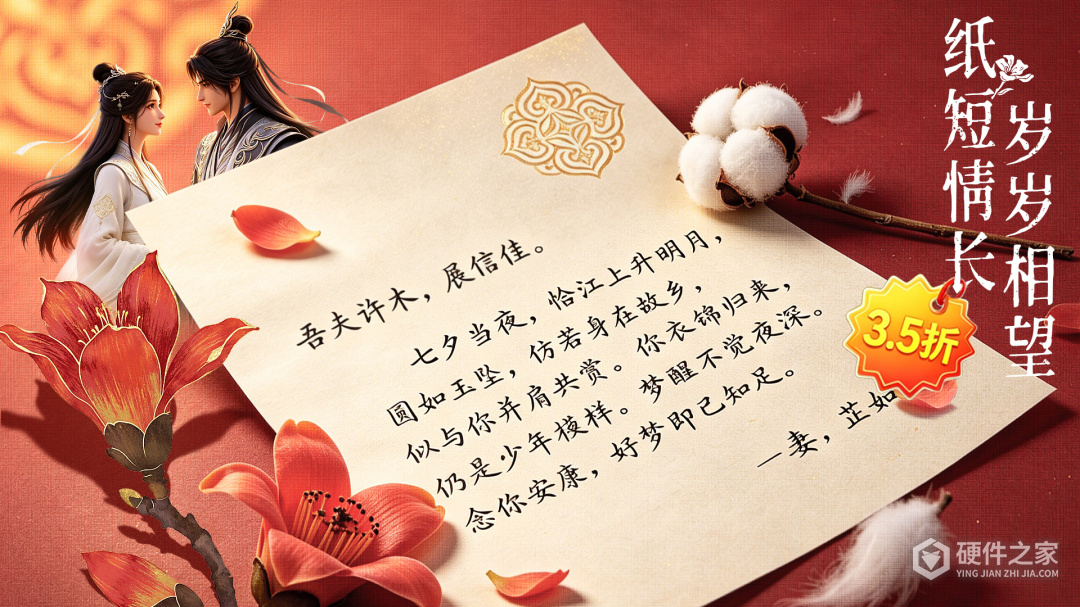 纸短情长
岁岁相望
吾夫许木，展信佳。
七夕当夜，恰江上升明月，
圆如玉坠，仿若身在故乡，
似与你并肩共赏。你衣锦归来，
仍是少年模样。梦醒不觉夜深。
念你安康，好梦即已知足。
一妻，芷如
3.5折
硬件之家
YING JIAN ZHI JIA.COM